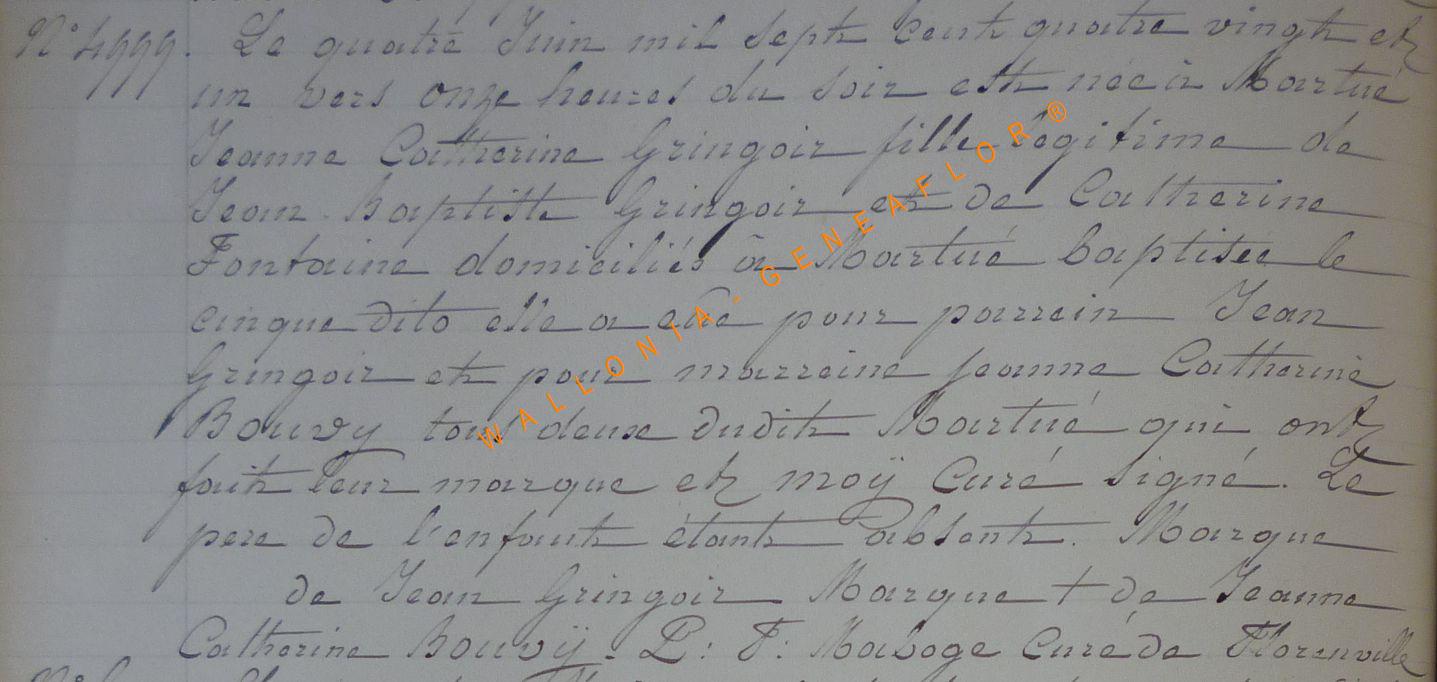 N° 4999. Le quatre Juin mil sept cent quatre vingt et
un vers onze heures du soir est née à Martué
Jeanne Catherine Gringoir fille legitime de
Jean-Baptiste Gringoir et de Catherine
Fontaine domiciliés à Martué baptisée le
cinque dito elle a eue pour parrein Jean
Gringoir et pour marreine Jeanne Catherine
Bouvy tous deux dudit Martué qui ont
fait leur marque et moÿ Curé signé. Le
pere de l'enfant étant absent. Marque
de Jean Gringoir Marque + de Jeanne
Catherine Bouvÿ. P: F: Maboge Curé de Florenville
WALLONIA-GENEAFLOR®